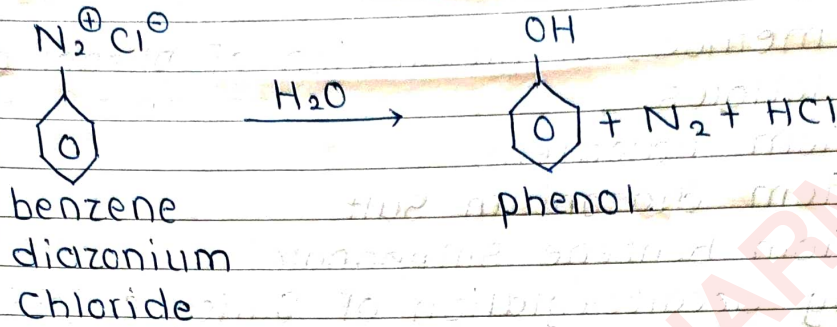 N₂⊕ Cl⊖
OH
H₂O
+ N₂ + HCl
benzene
diazonium
Chloride
phenol
ARM